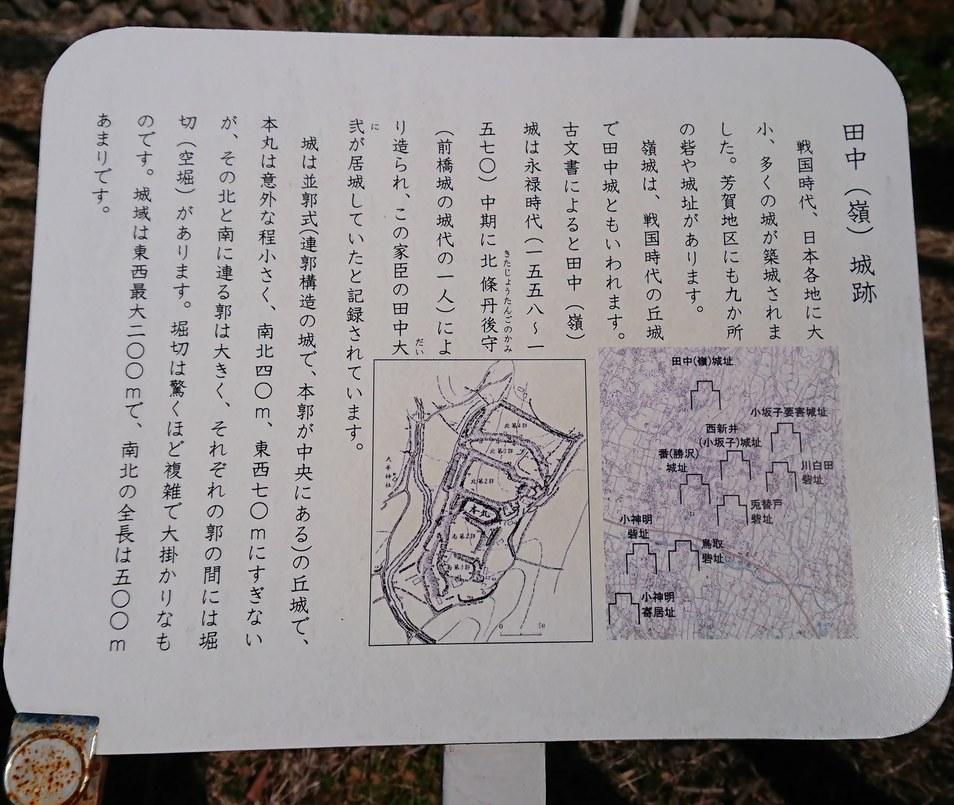 田中（嶺）城跡
戦国時代、日本各地に大
小、多くの城が築城されま
した。芳賀地区にも九か所
の砦や城址があります。
嶺城は、戦国時代の丘城
で田中城ともいわれます。
古文書によると田中（嶺）
城は永禄時代（一五五八～一
五七〇）中期に北條丹後守
きたじょうたんごのかみ
（前橋城の城代の一人）によ
り造られ、この家臣の田中大
だい
弐が居城していたと記録されています。
に
城は並郭式(連郭構造の城で、本郭が中央にある)の丘城で、
本丸は意外な程小さく、南北四〇ｍ、東西七〇ｍにすぎない
が、その北と南に連る郭は大きく、それぞれの郭の間には堀
切（空堀）があります。堀切は驚くほど複雑で大掛かりなも
のです。城域は東西最大二〇〇ｍで、南北の全長は五〇〇ｍ
あまりです。
田中(嶺)城址
小坂子要害城址
西新井
(小坂子)城址
番(勝沢)
城址
川白田
砦址
兎替戸
砦址
小神明
砦址
鳥取
砦址
小神明
寄居址
北第2郭
本丸
南第2郭
0 50